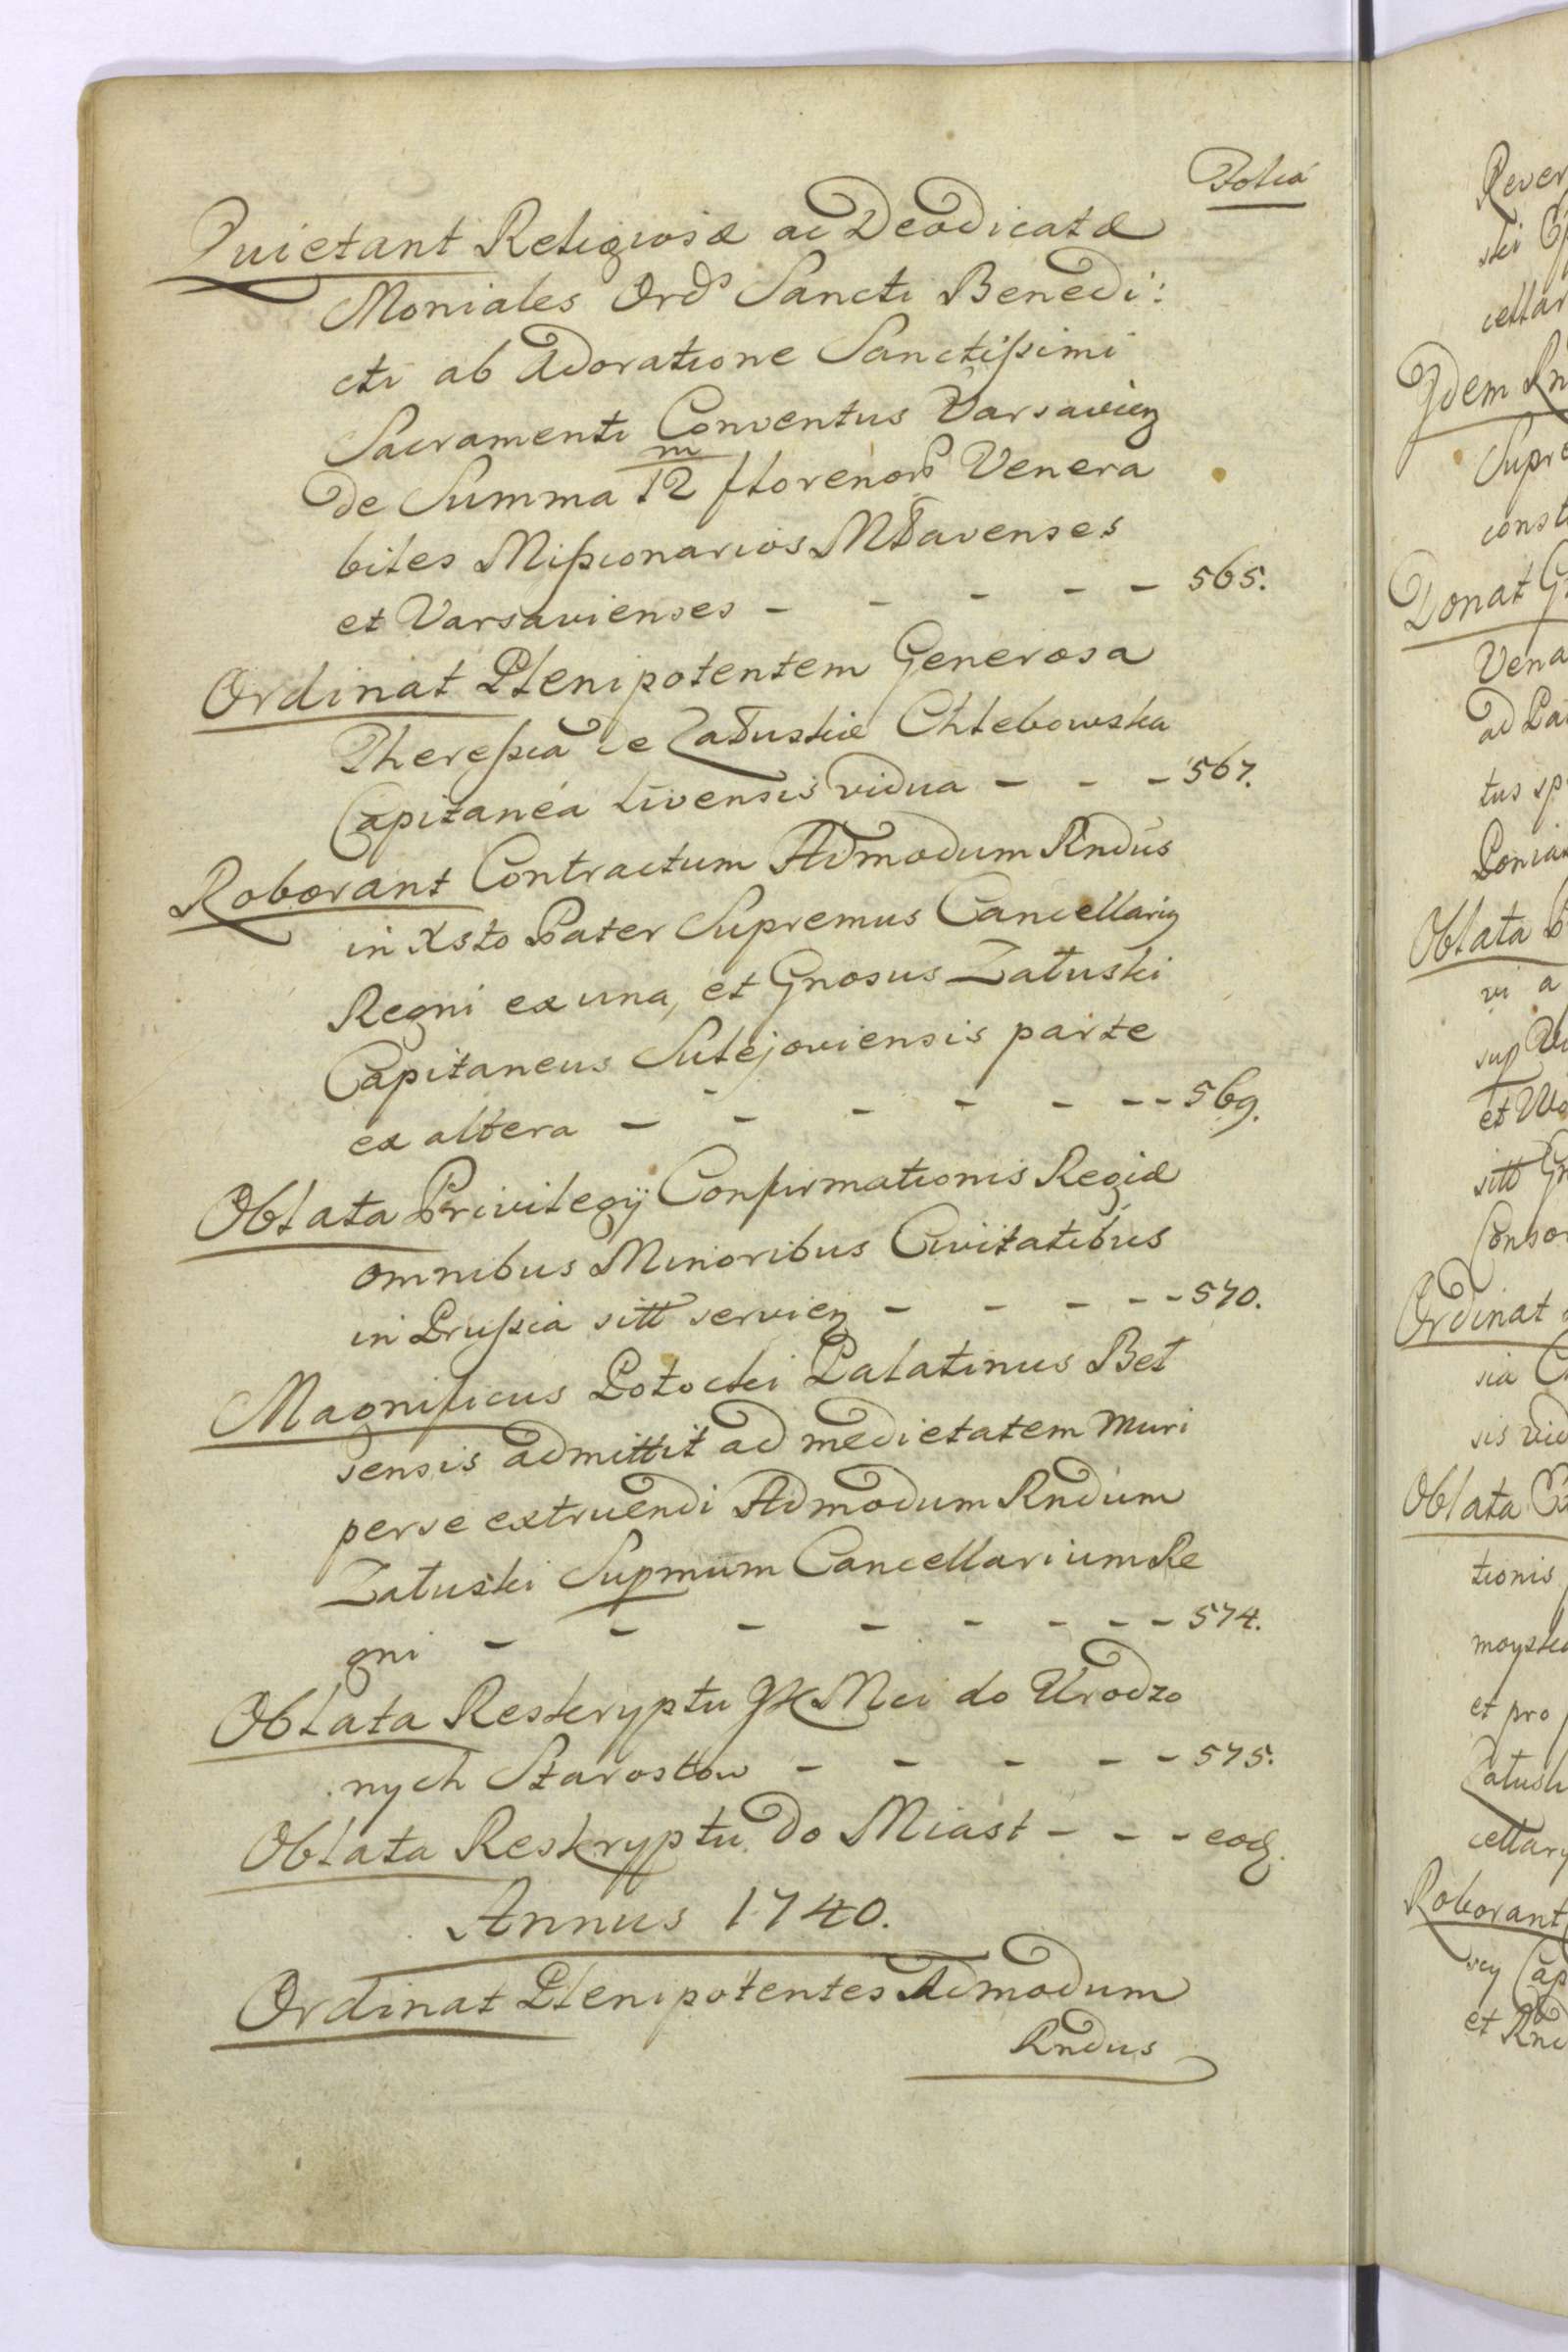 Folia
Quietant Religiosæ ac Deodicatæ
Moniales Ords Sancti Benedi:
cti ab Adoratione Sanctissimi
Sacramenti Conventus Varsavien
m
de Summa 12 florenor Venera
biles Missionarios Mławenses
et Varsavienses - - - - - 565.
Ordinat Plenipotentem Generosa
Theressia de Załuskie Chlebowska
Capitanea Livensis vidua - - - 567.
Roborant Contractum Admodum Rndus
in Xsto Pater Supremus Cancellarig
Regni ex una, et Gnosus Załuski
Capitaneus Sulejoviensis parte
ex altera - - - - - - - 569.
Oblata Privilegÿ Confirmationis Regiæ
omnibus Minoribus Civitatibus
in Prussia sitt servien - - - - - 570.
Magnificus Potocki Palatinus Bel
sensis admittit ad medietatem Muri
per se extruendi Admodum Rndum
Załuski Supmum Cancellarium Re
gni - - - - - - - - 574.
Oblata Reskryptu JKMci do Urodzo
nych Starostow - - - - - 575.
Oblata Reskryptu do Miast - - - eod.
Annus 1740.
Ordinat Plenipotentes Admodum
Rndus
Rever
ski
cellar
Idem Rn
Supre
const
Donat G
Vena
ad Pa
tus sp
Ponia
Oblata
vi a
sup
et Wo
sitt Gn
Conso
Ordinat
sia C
sis vid
Oblata
tionis
moyske
et pro
Załusk
cellary
Roborant
Cap
et Rnd